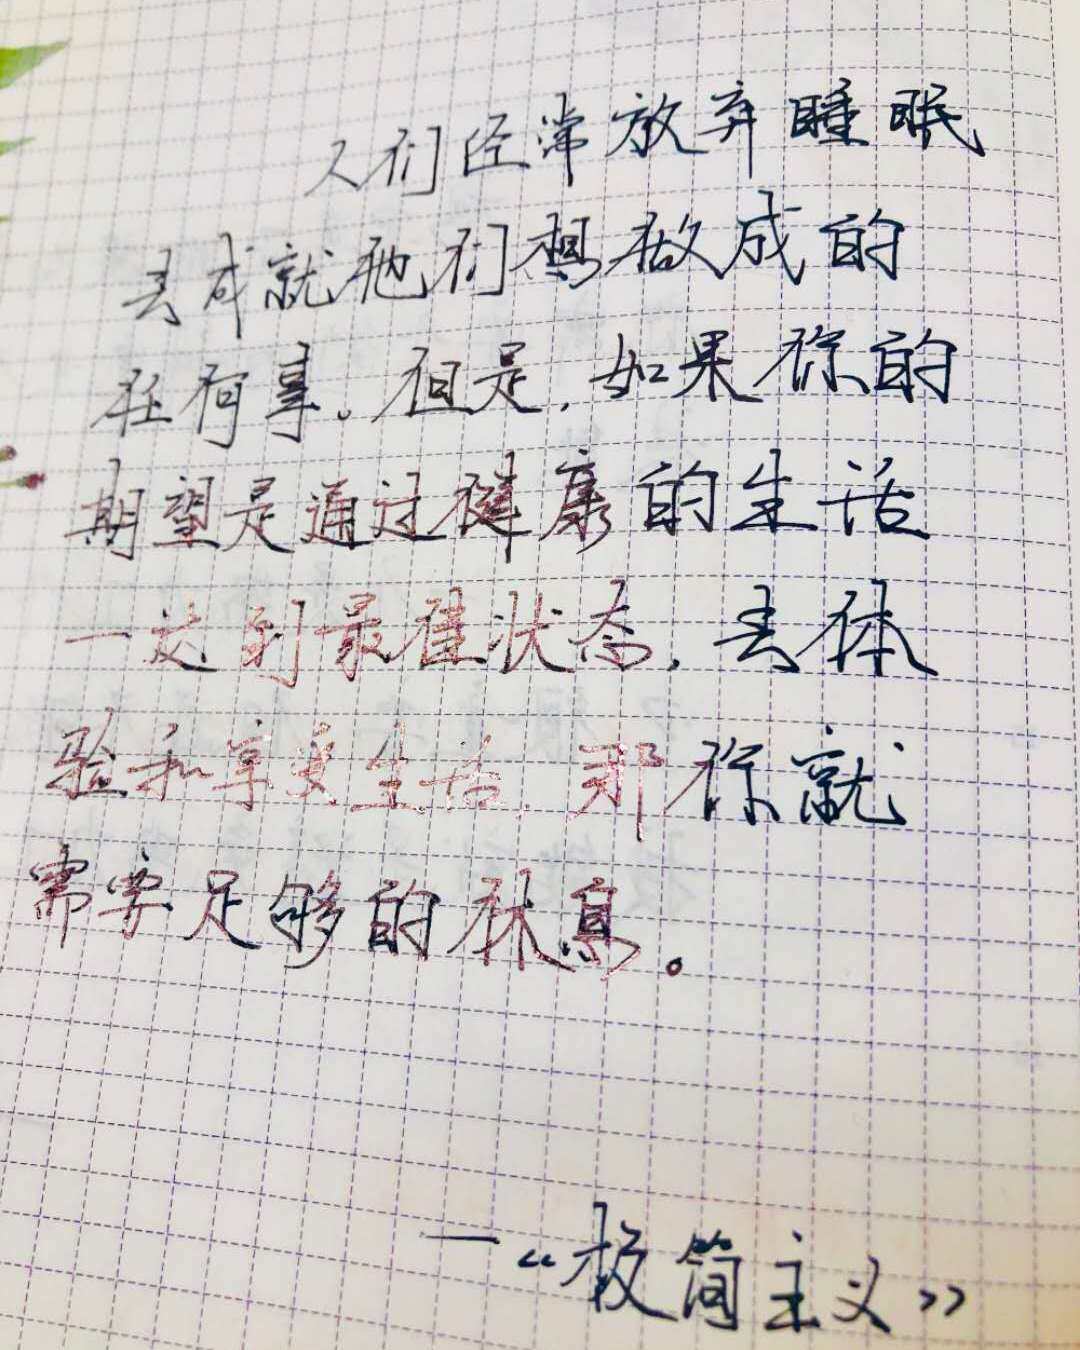 人们经常放弃睡眠
去成就他们想做成的
任何事。但是,如果你的
期望是通过健康的生活
一达到最佳状态,去体
验和享受生活,那你就
需要足够的休息。
—《极简主义》